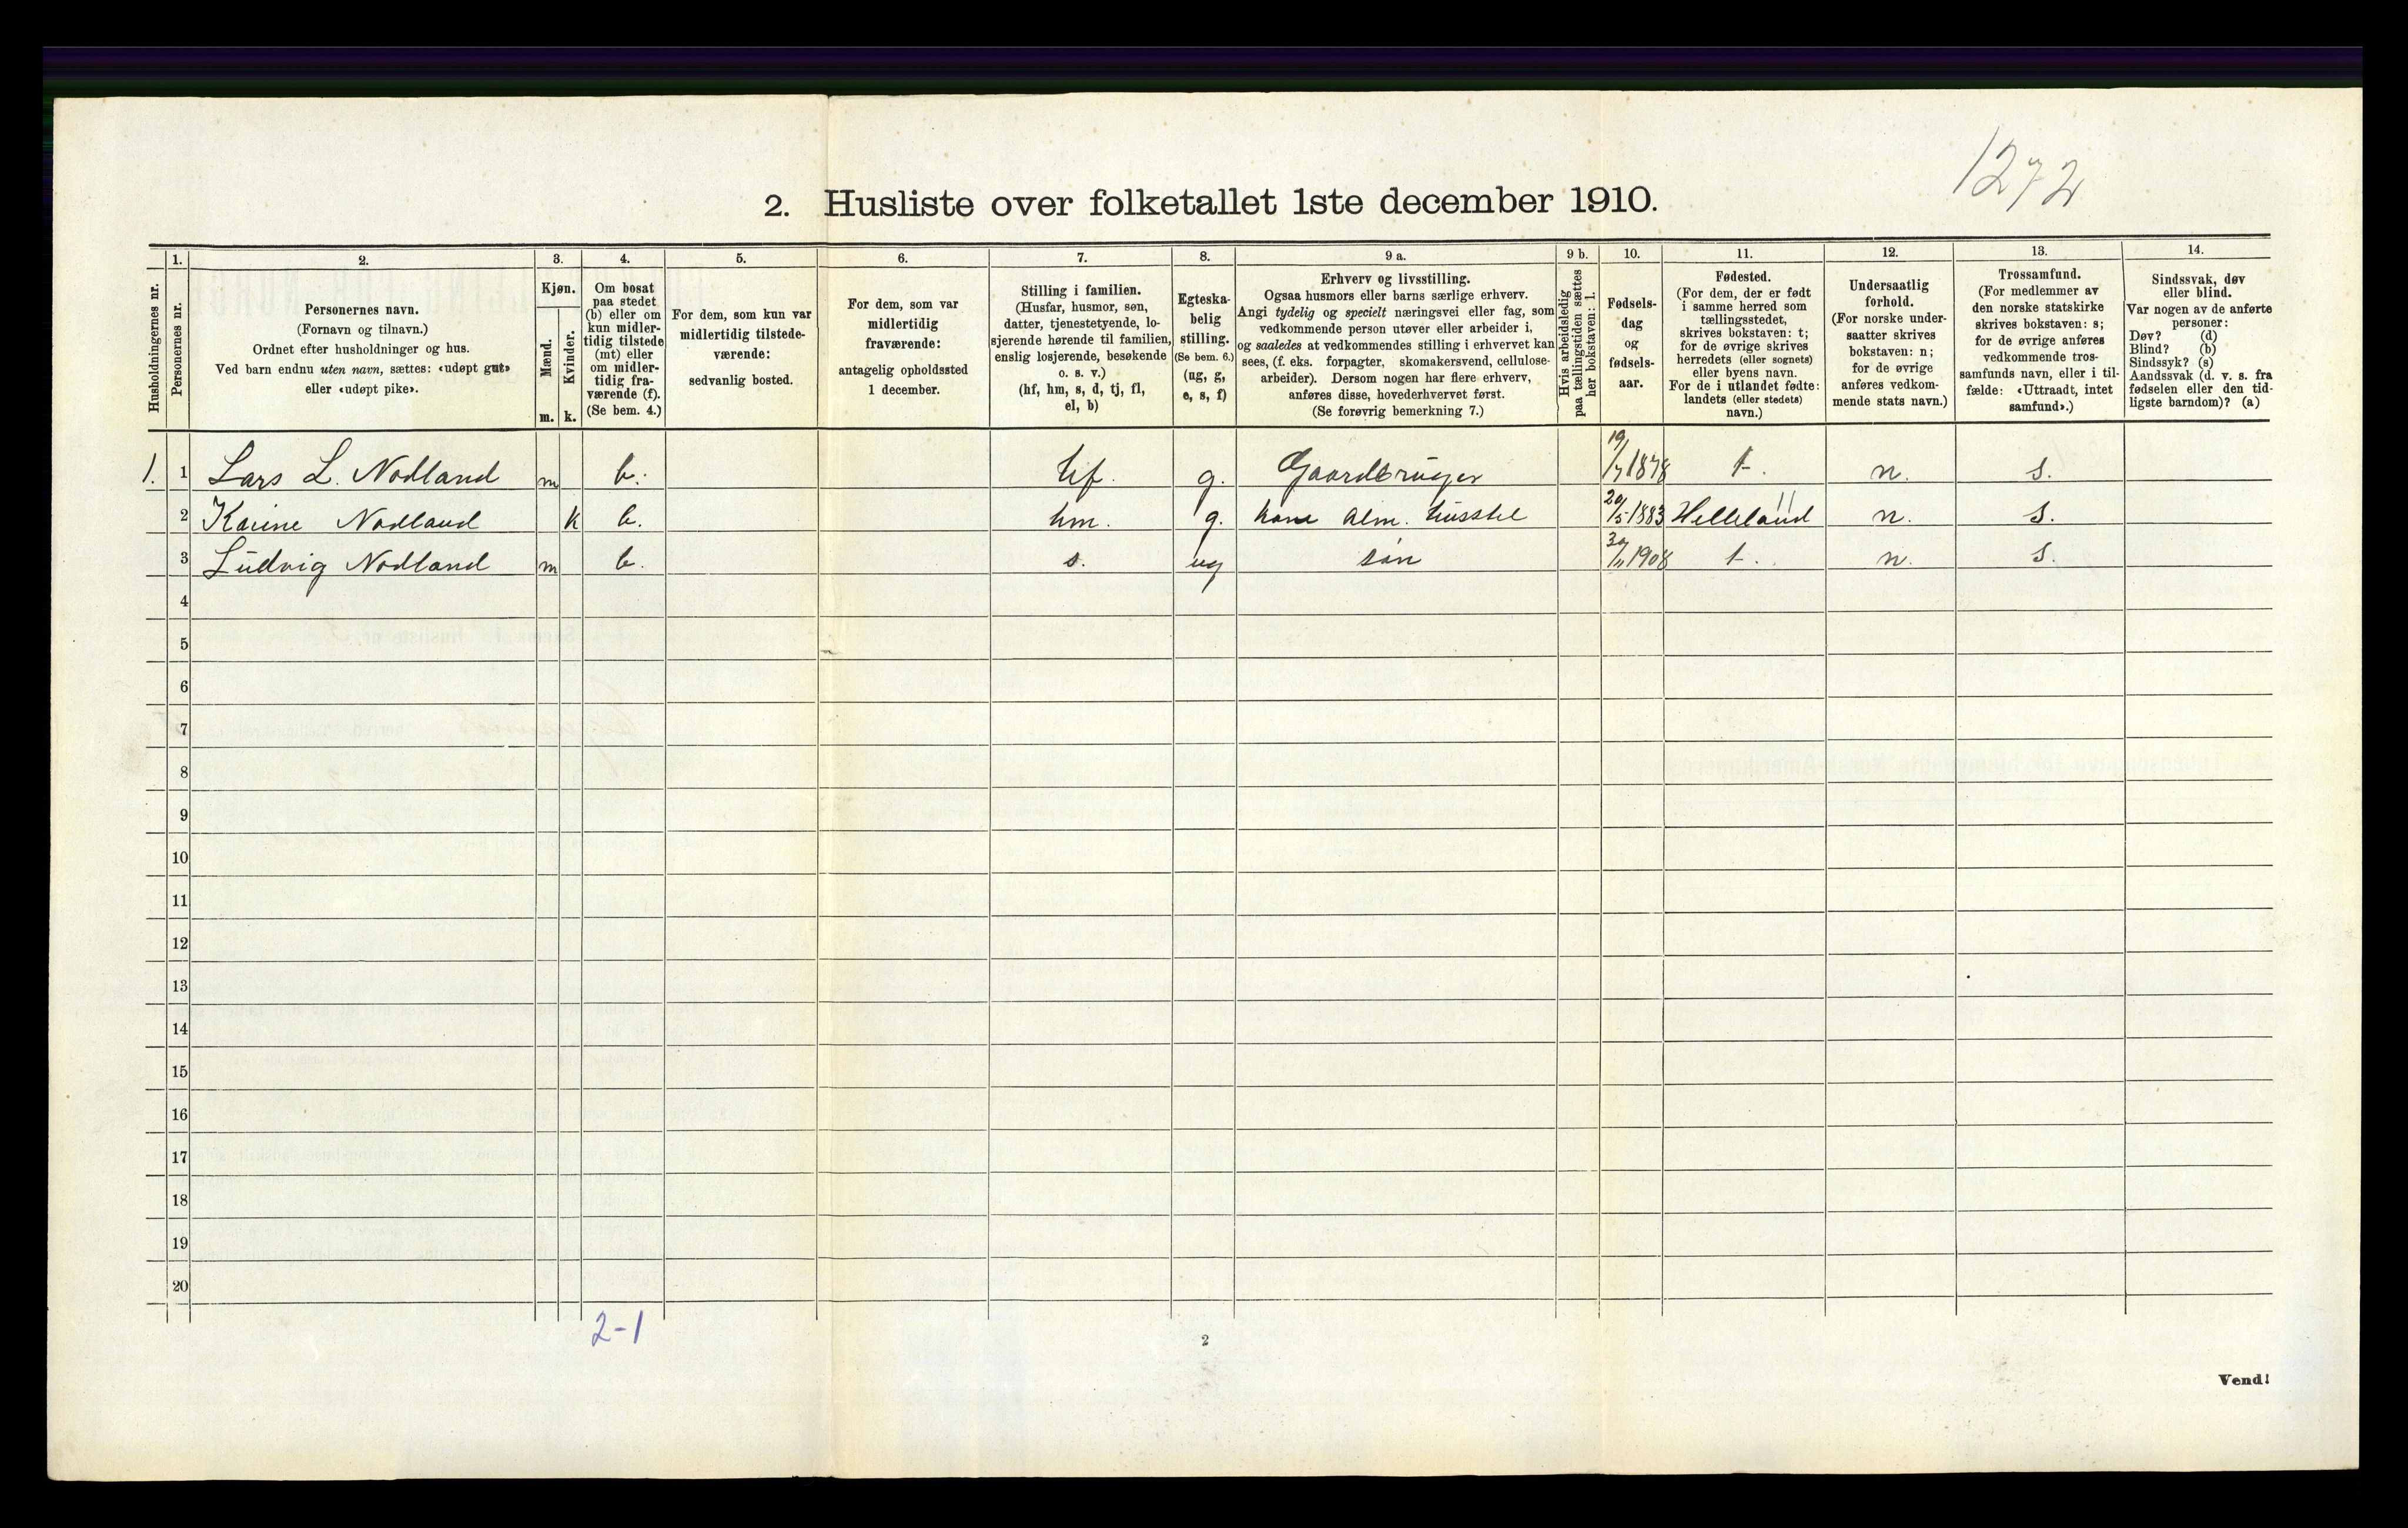 1272
2. Husliste over folketallet 1ste december 1910.
Husholdningernes nr.
1.
Personernes nr.
2.
Personernes navn.
(Fornavn og tilnavn.)
Ordnet efter husholdninger og hus.
Ved barn endnu uten navn, sættes: «udøpt gut»
eller «udøpt pike».
3.
Kjøn.
Mænd.
m.
Kvinder.
k.
4.
Om bosat
paa stedet
(b) eller om
kun midler-
tidig tilstede
(mt) eller
om midler-
tidig fra-
værende (f).
(Se bem. 4.)
5.
For dem, som kun var
midlertidig tilstede-
værende:
sedvanlig bosted.
6.
For dem, som var
midlertidig
fraværende:
antagelig opholdssted
1 december.
7.
Stilling i familien.
(Husfar, husmor, søn,
datter, tjenestetyende, lo-
sjerende hørende til familien,
enslig losjerende, besøkende
o. s. v.)
(hf, hm, s, d, tj, fl,
el, b)
8.
Egteska-
belig
stilling.
(Se bem. 6.)
(ug, g,
e, s, f)
9 a.
Erhverv og livsstilling.
Ogsaa husmors eller barns særlige erhverv.
Angi tydelig og specielt næringsvei eller fag, som
vedkommende person utøver eller arbeider i,
og saaledes at vedkommendes stilling i erhvervet kan
sees, (f. eks. forpagter, skomakersvend, cellulose-
arbeider). Dersom nogen har flere erhverv,
anføres disse, hovederhvervet først.
(Se forøvrig bemerkning 7.)
9 b.
Hvis arbeidsledig
paa tællingstiden sættes
her bokstaven: l.
10.
Fødsels-
dag
og
fødsels-
aar.
11.
Fødested.
(For dem, der er født
i samme herred som
tællingsstedet,
skrives bokstaven: t;
for de øvrige skrives
herredets (eller sognets)
eller byens navn.
For de i utlandet fødte:
landets (eller stedets)
navn.)
12.
Undersaatlig
forhold.
(For norske under-
saatter skrives
bokstaven: n;
for de øvrige
anføres vedkom-
mende stats navn.)
13.
Trossamfund.
(For medlemmer av
den norske statskirke
skrives bokstaven: s;
for de øvrige anføres
vedkommende tros-
samfunds navn, eller i til-
fælde: «Uttraadt, intet
samfund».)
14.
Sindssvak, døv
eller blind.
Var nogen av de anførte
personer:
Døv? (d)
Blind? (b)
Sindssyk? (s)
Aandssvak (d. v. s. fra
fødselen eller den tid-
ligste barndom)? (a)
1. 1 Lars L. Nodland m b. hf. g. Gaardbruger 19/7 1878 t. n. s.
2 Karine Nodland k b. hm. g. kone alm. husstel 20/5 1883 Helleland n. s.
3 Ludvig Nodland m b. s. ug søn 30/11 1908 t. n. s.
4
5
6
7
8
9
10
11
12
13
14
15
16
17
18
19
20
2-1
2
Vend!